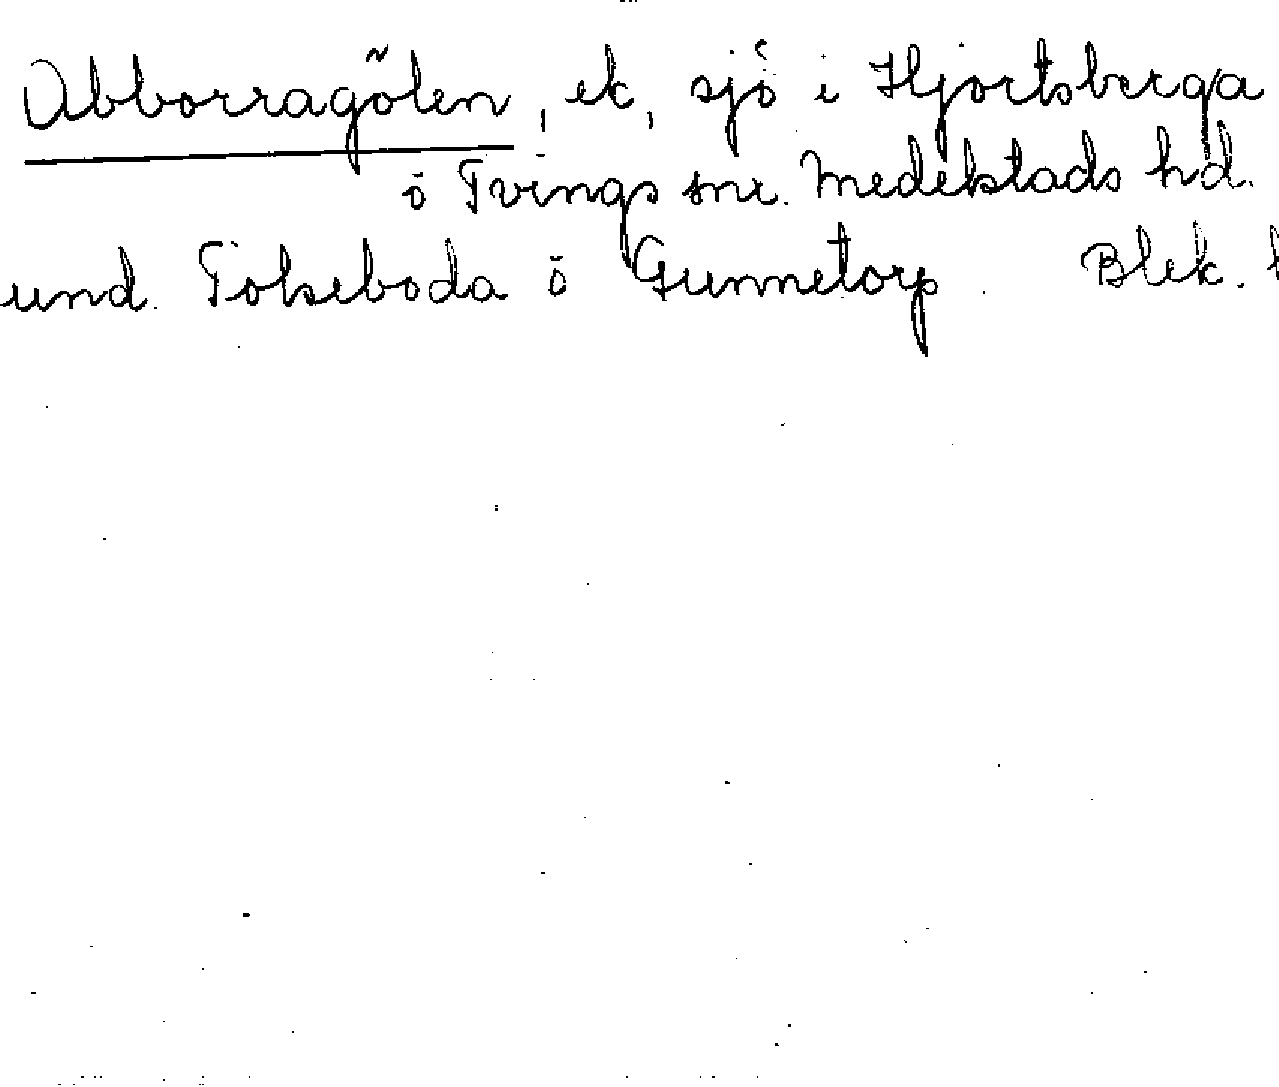 Abborragölen, ek, sjö i Hjortsberga
o Tvings snr. Medelstads hd.
und. Tolseboda o Gunnetorp. Blek. l